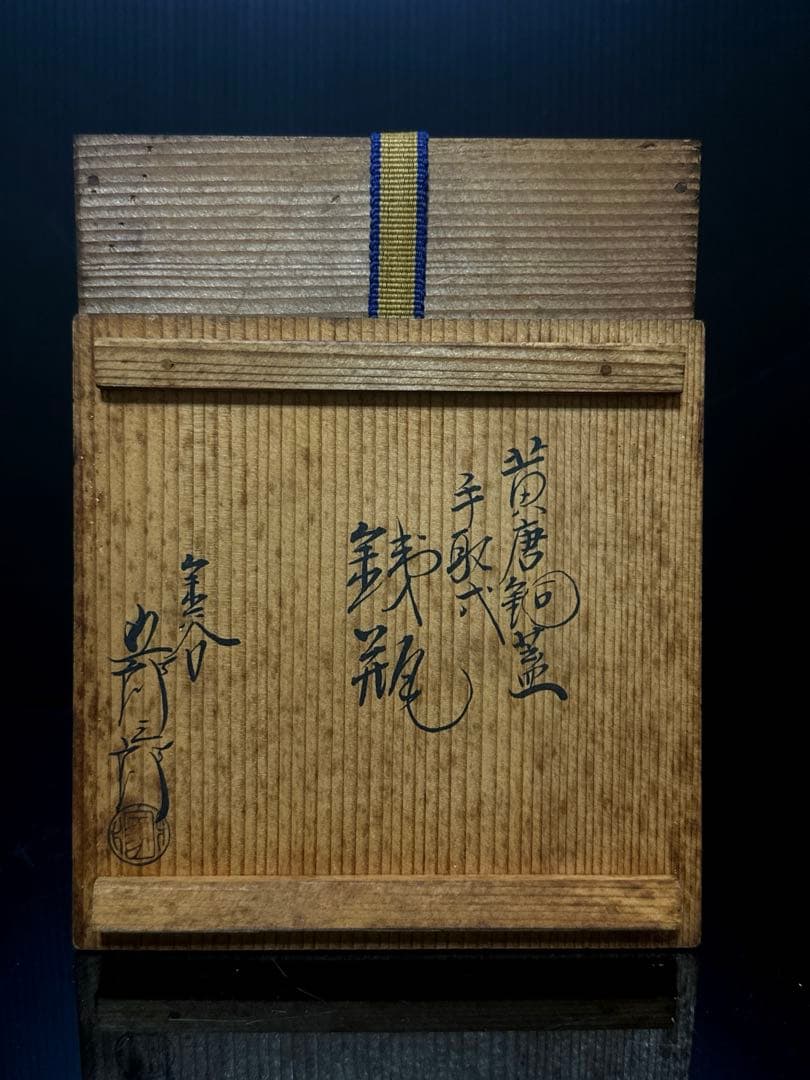 黄唐銅蓋
手取式
銕瓶
金谷
五郎三郎